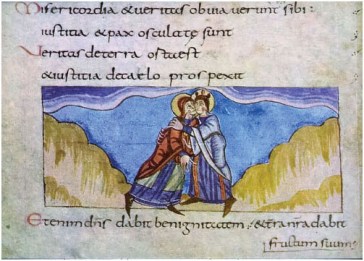 Misericordia & veritas obviaverunt sibi:
iustitia & pax osculatę sunt
Veritas de terra orta est
& iustitia de caelo prospexit
Etenim dns dabit benignitatem; & terra nra dabit
fructum suum